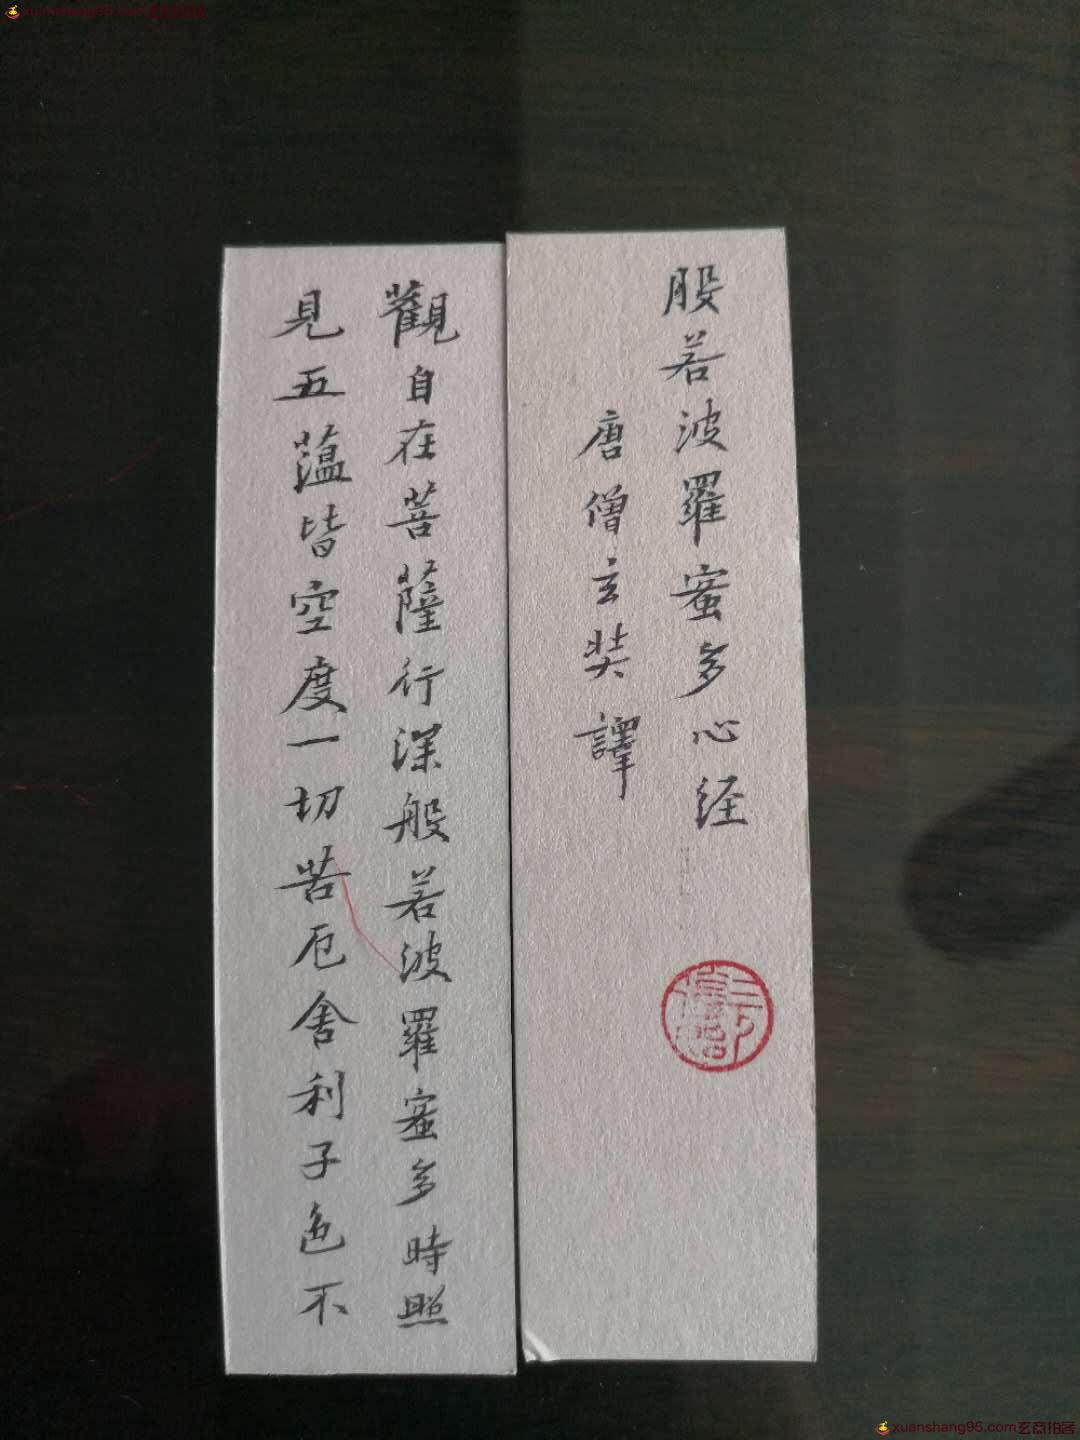 股若波羅蜜多心经
唐僧玄奘譯
觀自在菩薩行深般若波羅蜜多時照
見五蕰皆空度一切苦厄舍利子色不
xuanshang95.com玄商拍客
xuanshang95.com玄商拍客